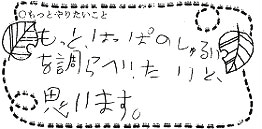 ○もっとやりたいこと
もっと、はっぱのしゅるい
を調らべたいと、
思います。